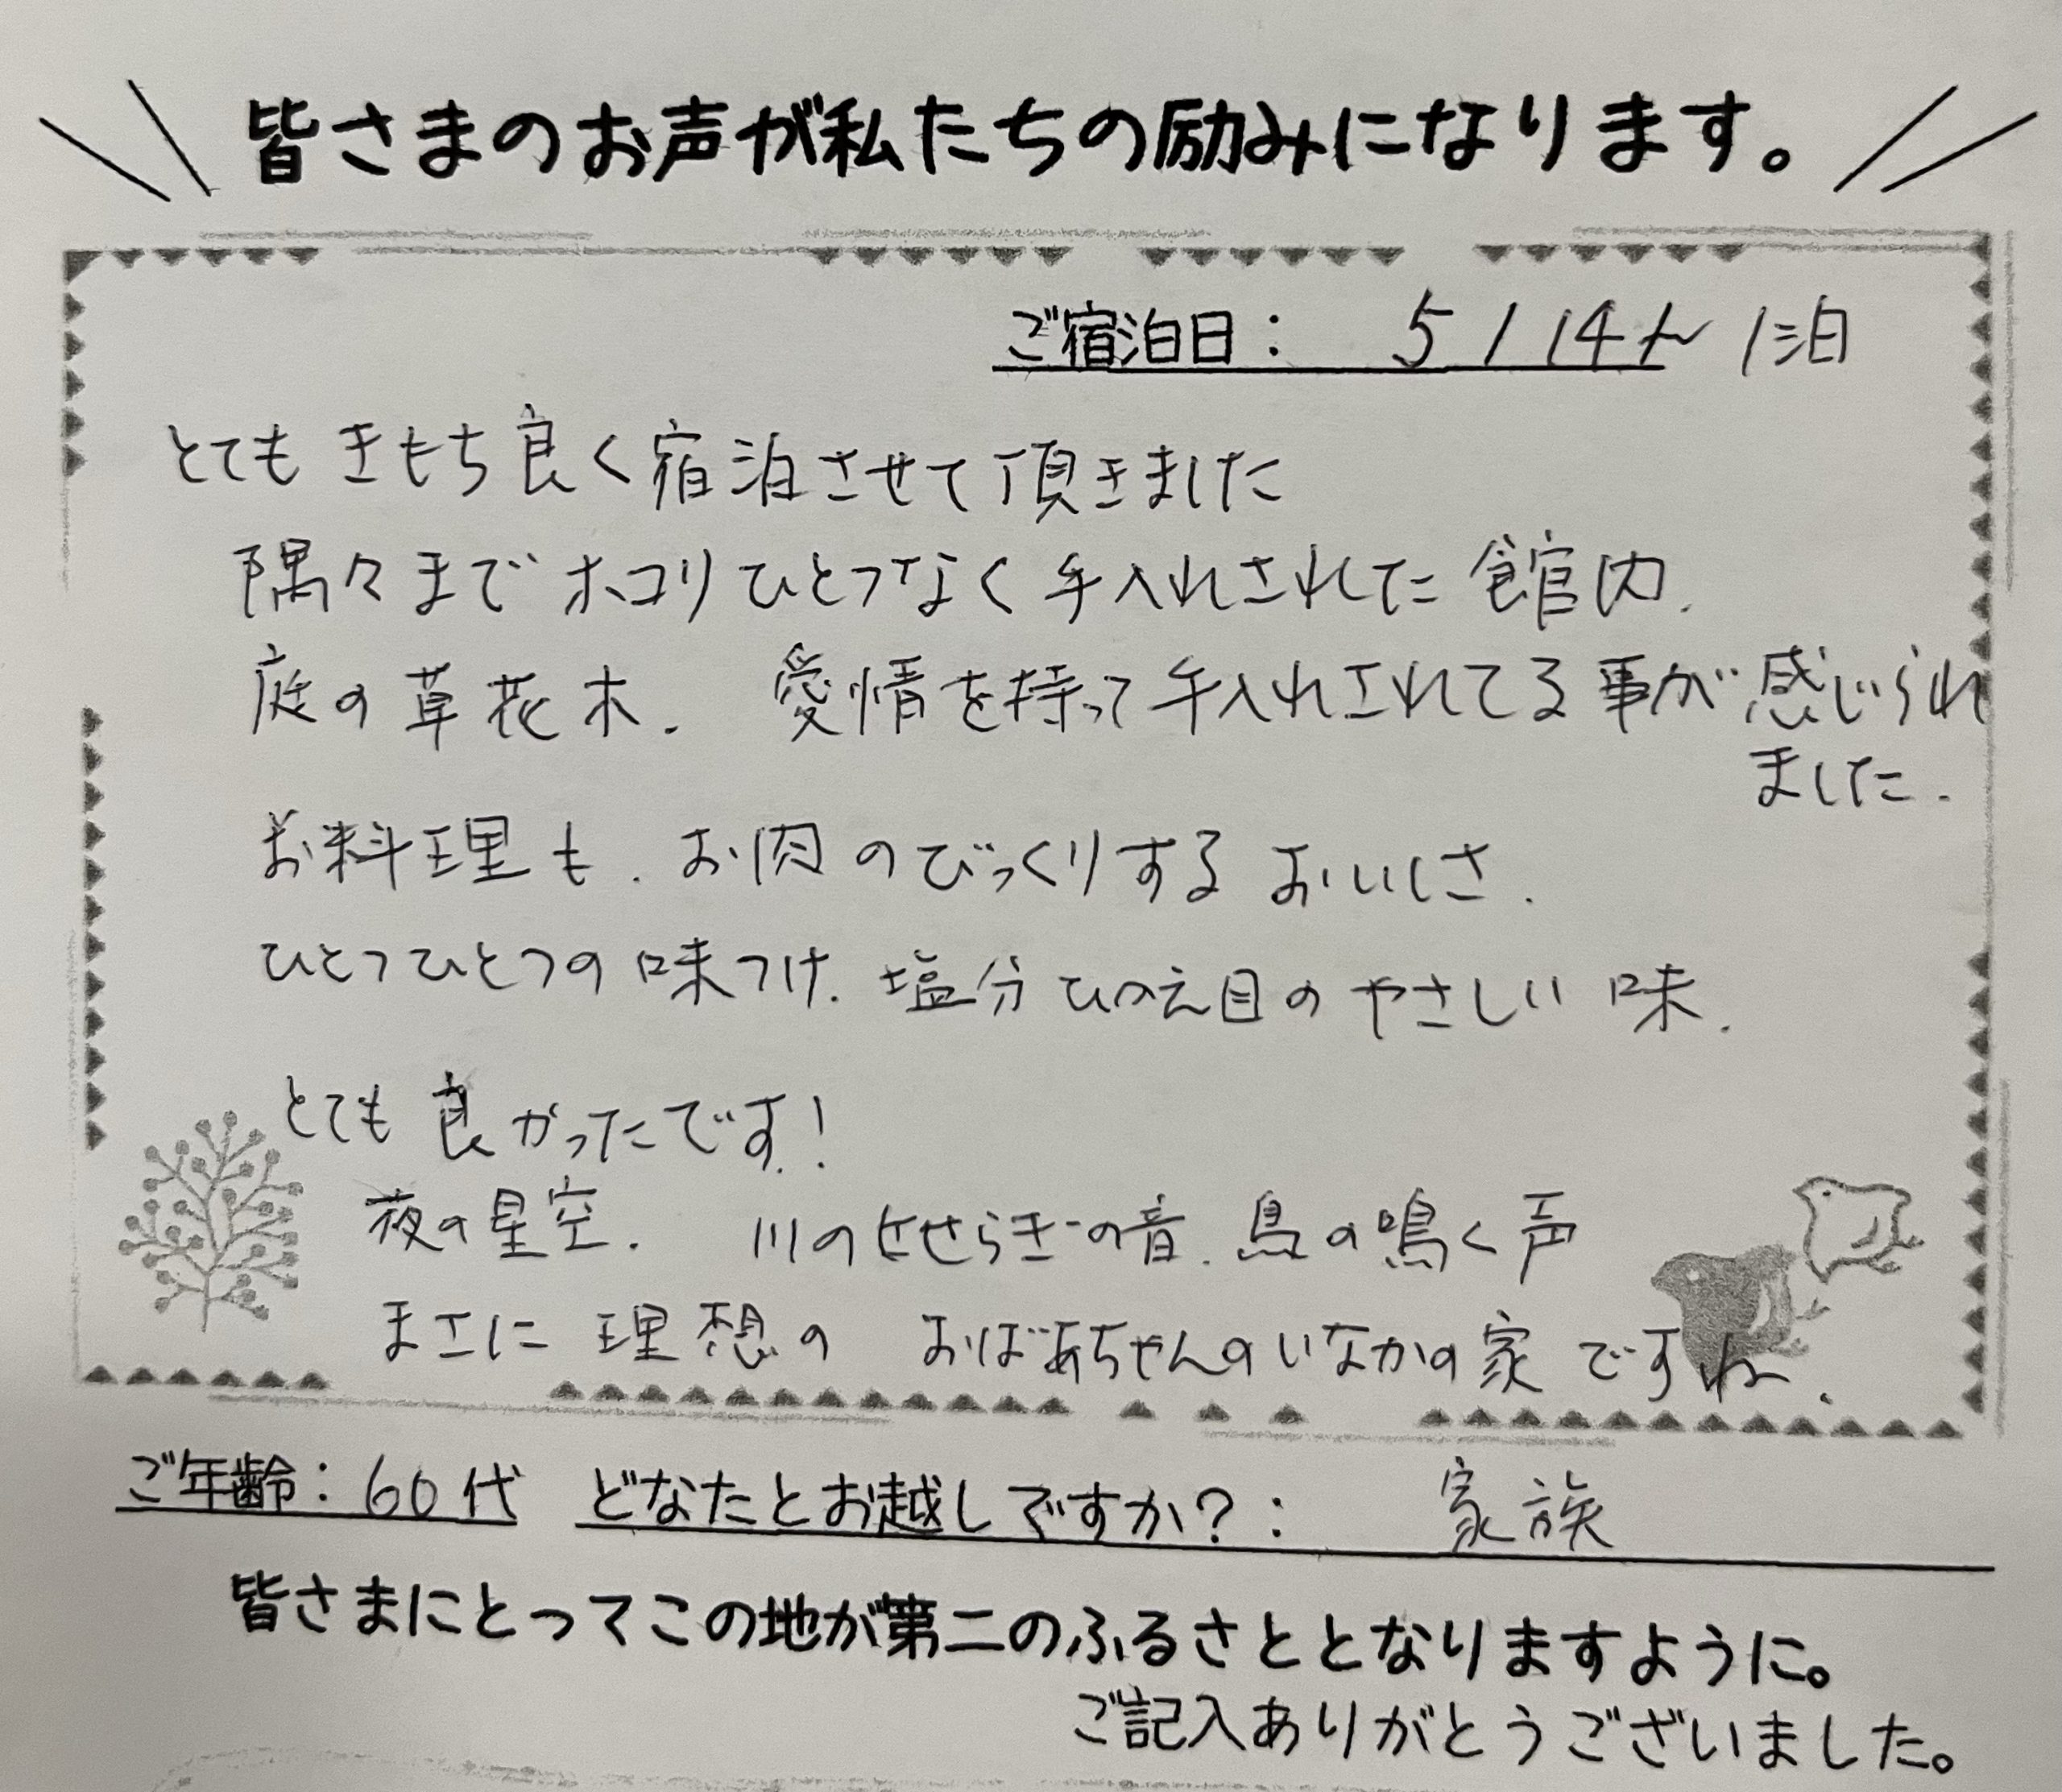 皆さまのお声が私たちの励みになります。
ご宿泊日： 5/14~ 1泊
とても きもち良く宿泊させて頂きました
隅々まで ホコリひとつなく 手入れされてた 館内.
庭の草花木. 愛情を持って手入れされてる事が感じられ
ました.
お料理も. お肉のびっくりする おいしさ.
ひとつひとつの味つけ. 塩分ひかえ目の やさしい 味.
とても 良かったです!
夜の星空. 川のせせらぎの音. 鳥の鳴く声
まさに 理想の おばあちゃんのいなかの家ですね.
ご年齢：60代 どなたとお越しですか？： 家族
皆さまにとってこの地が第二のふるさととなりますように。
ご記入ありがとうございました。